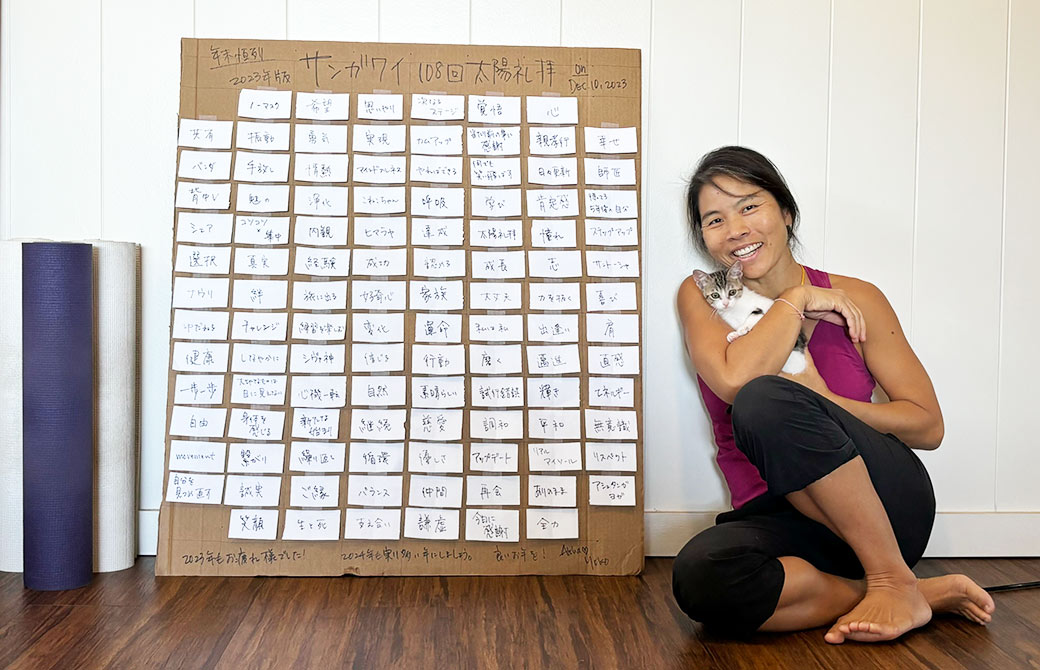 年末恒例
2023年版
サンガワイ 108回太陽礼拝
on
Dec 10, 2023
ノーマスク 希望 思いやり 次なるステージ 覚悟 心
共有 振動 勇気 実現 カムアップ 当たり前の事に感謝 親孝行 幸せ
パンダ 手放し 情動 マインドフルネス やればできる 何でも笑い飛ばそう 自力更新 師匠
背中し 魅力 浄化 こねこちゃん 呼吸 学び 肯定感
シェア コツコツ集中 内観 ヒマラヤ 達成 太陽礼拝 憧れ ステップアップ
選択 真実 経験 底力 認める 成長 志 サントーシャ
ナウリ 絆 旅に出る 好奇心 家族 大丈夫 力を抜く 喜び
ゆだねる チャレンジ 練習を楽しむ 変化 運命 私は私 出逢い 肩
健康 しなやかに シヴァ神 信じる 行動 磨く 邁進 直感
一歩一歩 大切なものは目に見えない 心機一転 自然 素晴らしい 試行錯誤 輝き エネルギー
自由 身体を感じる 新たなる始まり 継続 慈愛 調和 平和 無意識
movement 繋がり 繰り返し 循環 優しさ アップデート リアルマイソール リスペクト
自分を見つめ直す 誠実 ご縁 バランス 仲間 再会 ありのまま アシュタンガヨガ
笑顔 生と死 支え合い 謙虚 今日に感謝 全力
2023年もお疲れ様でした! 2024年も実り多い年にしましょう。 良いお年を!